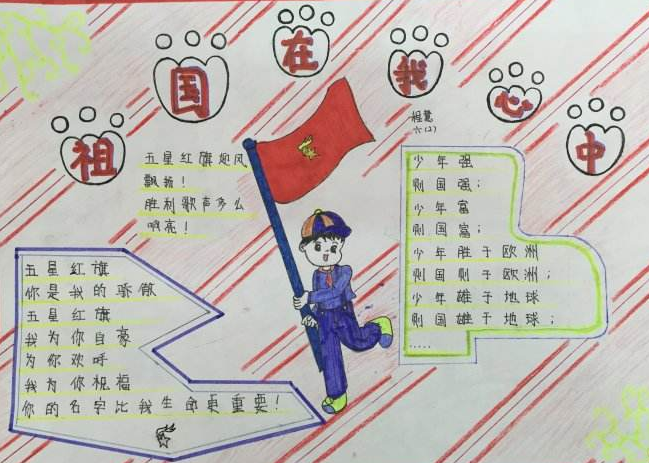 祖国在我心中
程慧
六(2)
五星红旗迎风
飘扬!
胜利歌声多么
响亮!
五星红旗
你是我的骄傲
五星红旗
我为你自豪
为你欢呼
我为你祝福
你的名字比我生命更重要!
少年强
则国强;
少年富
则国富;
少年胜于欧洲
则国则于欧洲;
少年雄于地球
则国雄于地球;
.....